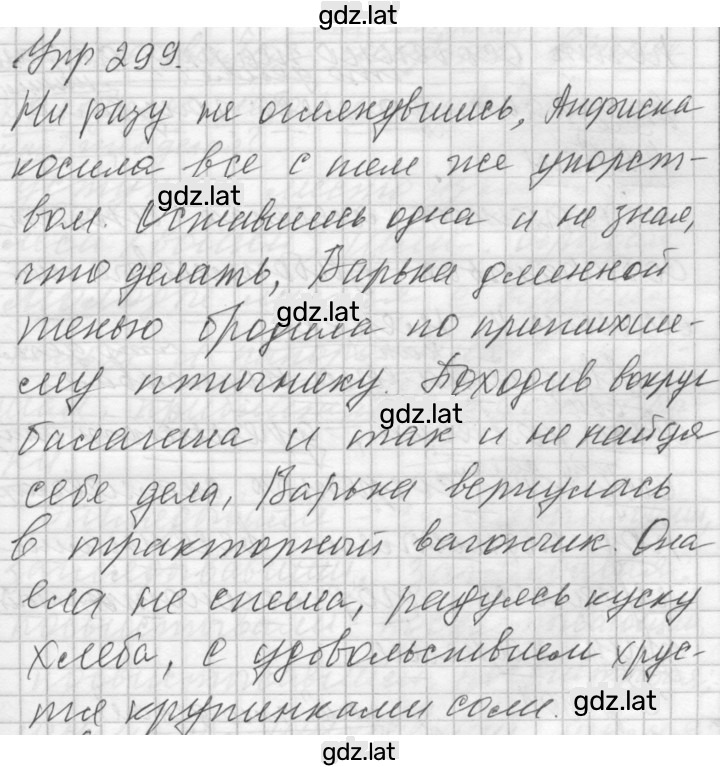 gdz.lat
Упр 299.
Ни разу не оглянувшись, Анфиска
косила все с тем же упорст-
gdz.lat
вом. Оставшись одна и не зная,
что делать, Варька длинной
gdz.lat
тенью бродила по притихше-
му птичнику. Походив вокруг
gdz.lat
балагана и так и не найдя
себе дела, Варька вернулась
в тракторный вагончик. Она
ела не спеша, радуясь куску
хлеба, с удовольствием хрус-
тя крупинками соли.
gdz.lat
gdz.lat